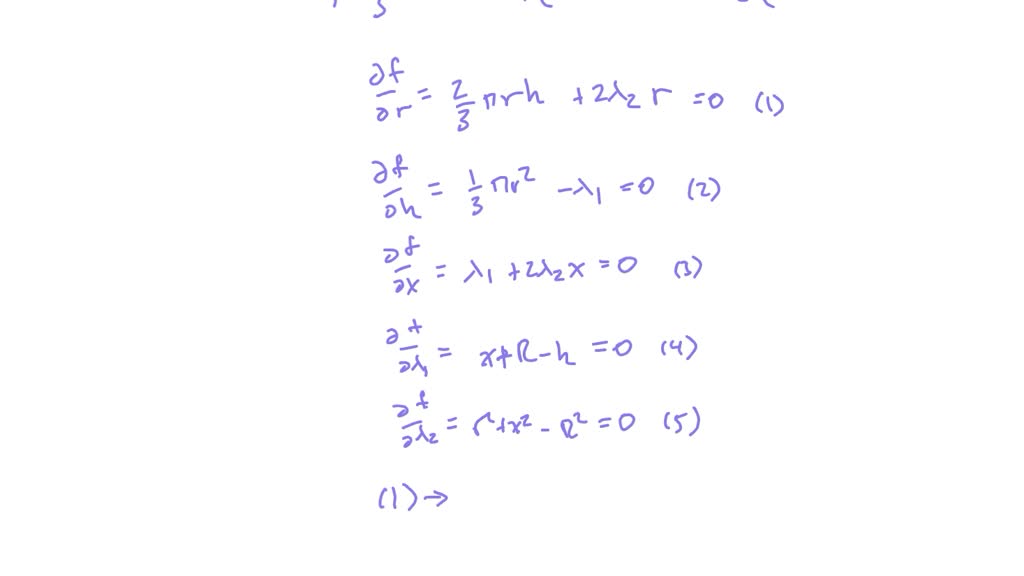 ∂f/∂r = 2/3 πrh + 2λ₂ r = 0 (1)
∂f/∂h = 1/3 πr² - λ₁ = 0 (2)
∂f/∂x = λ₁ + 2λ₂x = 0 (3)
∂f/∂λ₁ = x+R-h = 0 (4)
∂f/∂λ₂ = r²+x² - R² = 0 (5)
(1) →